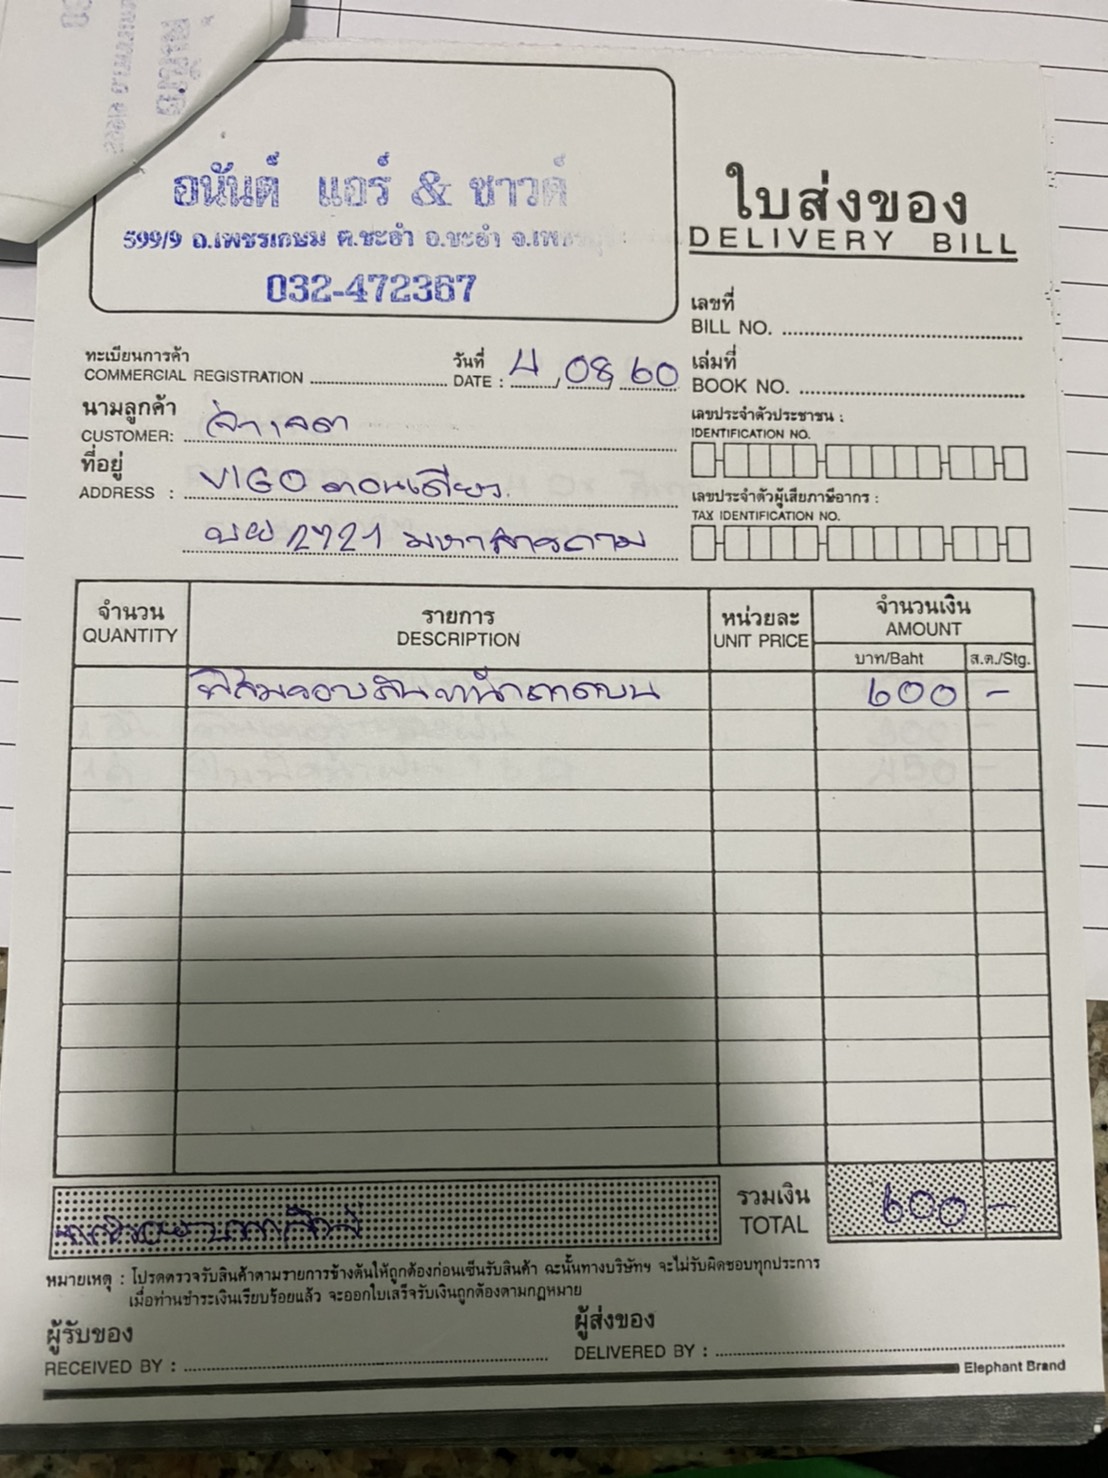 อนันต์ แอร์ & ซาวด์
599/9 ถ.เพชรเกษม ต.ชะอำ อ.ชะอำ จ.เพชร
032-472367
ใบส่งของ
DELIVERY BILL
เลขที่
BILL NO.
ทะเบียนการค้า
COMMERCIAL REGISTRATION
วันที่
DATE : 4, 08, 60
เล่มที่
BOOK NO.
นามลูกค้า
CUSTOMER:
เลขประจำตัวประชาชน :
IDENTIFICATION NO.
ที่อยู่
ADDRESS : VIGO ตอนเดียว
2721 มหาสารคาม
เลขประจำตัวผู้เสียภาษีอากร :
TAX IDENTIFICATION NO.
จำนวน
QUANTITY
รายการ
DESCRIPTION
หน่วยละ
UNIT PRICE
จำนวนเงิน
AMOUNT
บาท/Baht ส.ต./Stg.
600 -
รวมเงิน
TOTAL
600 -
หมายเหตุ : โปรดตรวจรับสินค้าตามรายการข้างต้นให้ถูกต้องก่อนเซ็นรับสินค้า ฉะนั้นทางบริษัทฯ จะไม่รับผิดชอบทุกประการ
เมื่อท่านชำระเงินเรียบร้อยแล้ว จะออกใบเสร็จรับเงินถูกต้องตามกฎหมาย
ผู้รับของ
RECEIVED BY :
ผู้ส่งของ
DELIVERED BY :
Elephant Brand